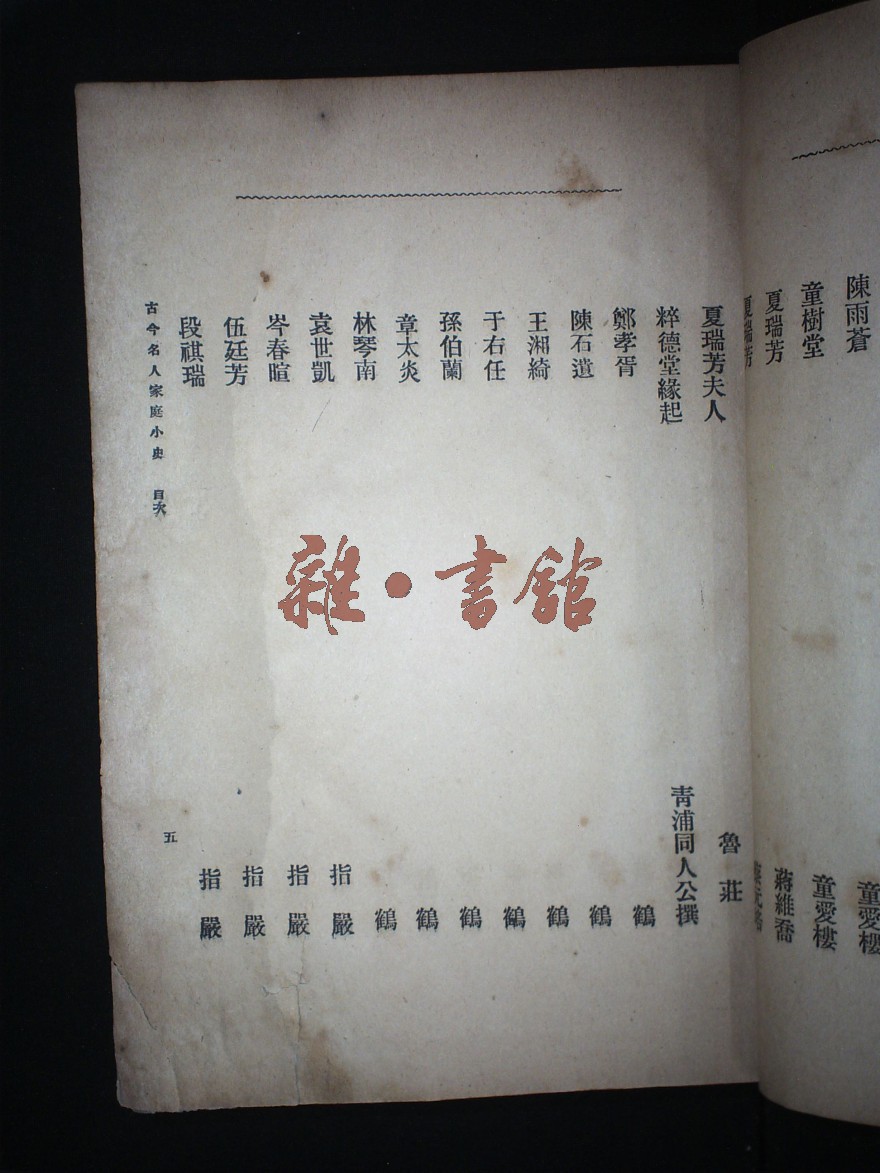 陳雨蒼 童愛樓
童樹堂 童愛樓
夏瑞芳 蔣維喬
夏瑞芳
夏瑞芳夫人 魯莊
粹德堂緣起 青浦同人公撰
鄭孝胥 鶴
陳石遺 鶴
王湘綺 鶴
于右任 鶴
孫伯蘭 鶴
章太炎 鶴
林琴南 鶴
袁世凱 指嚴
岑春暄 指嚴
伍廷芳 指嚴
段祺瑞 指嚴
古今名人家庭小史 目次 五
雜·書館